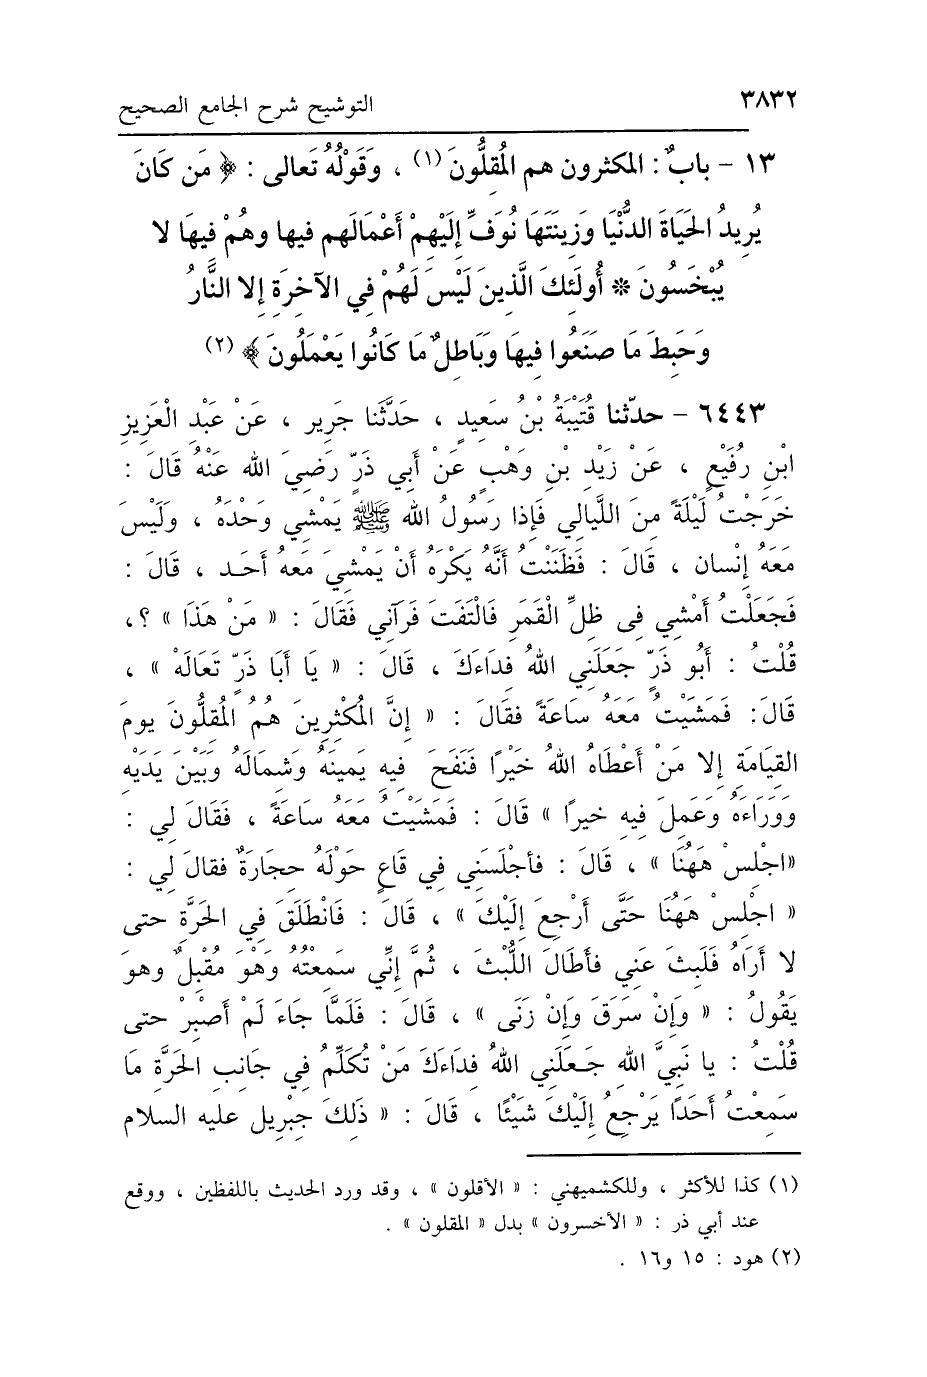 ٣٨٣٢ التوشيح شرح الجامع الصحيح
١٣ - بابٌ : المكثرون هم المُقِلُّونَ (١) ، وَقَوْلُهُ تَعالى : ﴿ مَن كَانَ
يُرِيدُ الحَيَاةَ الدُّنْيَا وَزِينَتَهَا نُوَفِّ إِلَيْهِمْ أَعْمَالَهم فيها وهُمْ فِيهَا لا
يُبْخَسُونَ * أُولَئِكَ الَّذِينَ لَيْسَ لَهُمْ فِي الآخِرَةِ إلا النَّارُ
وَحَبِطَ مَا صَنَعُوا فِيهَا وَبَاطِلٌ مَا كَانُوا يَعْمَلُونَ ﴾ (٢)
٦٤٤٣ - حدّثنا قُتَيْبَةُ بْنُ سَعِيدٍ ، حَدَّثَنا جَرِير ، عَنْ عَبْدِ الْعَزِيزِ
ابْنِ رُفَيْعٍ ، عَنْ زَيْدِ بْنِ وَهْبٍ عَنْ أَبِي ذَرٍّ رَضِيَ الله عَنْهُ قَالَ :
خَرَجْتُ لَيْلَةً مِنَ اللَّيالِي فَإِذا رَسُولُ الله ﷺ يَمْشِي وَحْدَهُ ، وَلَيْسَ
مَعَهُ إِنْسان ، قَالَ : فَظَنَنْتُ أَنَّهُ يَكْرَهُ أَنْ يَمْشِيَ مَعهُ أَحَـد ، قَالَ :
فَجَعَلْتُ أَمْشِي فِى ظِلِّ الْقَمَرِ فَالْتَفَتَ فَرَآنِي فَقَالَ : « مَنْ هَذَا » ؟،
قُلْتُ : أَبُو ذَرٍّ جَعَلَنِي اللهُ فِدَاءَكَ ، قَالَ : « يَا أَبَا ذَرٍّ تَعَالَهْ » ،
قَالَ: فَمَشَيْتُ مَعَهُ سَاعَةً فقَالَ : « إِنَّ المُكْثِرِينَ هُمُ المُقِلُّونَ يومَ
القِيَامَةِ إلا مَنْ أعْطَاه اللهُ خَيْرًا فَنَفَحَ فِيهِ يَمِينَهُ وَشِمالَهُ وَبَيْنَ يَدَيْهِ
وَوَرَاءَهُ وَعَمِلَ فِيهِ خيرًا » قَالَ : فَمَشَيْتُ مَعَهُ ساعَةً ، فَقَالَ لِي :
«اجْلِسْ هَهُنَا » ، قَالَ : فأجْلَسَنِي فِي قَاعٍ حَوْلَهُ حِجَارَةٌ فقالَ لِي :
« اجلِسْ هَهُنَا حَتَّى أَرْجِعَ إِلَيْكَ » ، قَالَ : فَانْطَلَقَ فِي الحَرَّةِ حتى
لا أَرَاهُ فَلَبِثَ عَنِي فأَطَالَ اللُّبْثَ ، ثُمَّ إِنِّي سَمِعْتُهُ وَهْوَ مُقْبِلٌ وهوَ
يَقُولُ : « وَإِنْ سَرَقَ وَإِنْ زَنَى » ، قَالَ : فَلَمَّا جَاءَ لَمْ أَصْبِرْ حتى
قُلْتُ : يا نَبِيَّ الله جَـعَلَنِي اللهُ فِدَاءَكَ مَنْ تُكَلِّمُ فِي جَانِبِ الحَرَّةِ مَا
سَمِعْتُ أَحَدًا يَرْجِعُ إِلَيْكَ شَيْئًا ، قَالَ : « ذَلِكَ جِبْرِيل عليه السلام
(١) كذا للأكثر ، وللكشميهني : « الأقلون » ، وقد ورد الحديث باللفظين ، ووقع
عند أبي ذر : « الأخسرون » بدل « المقلون » .
(٢) هود : ١٥ و١٦ .